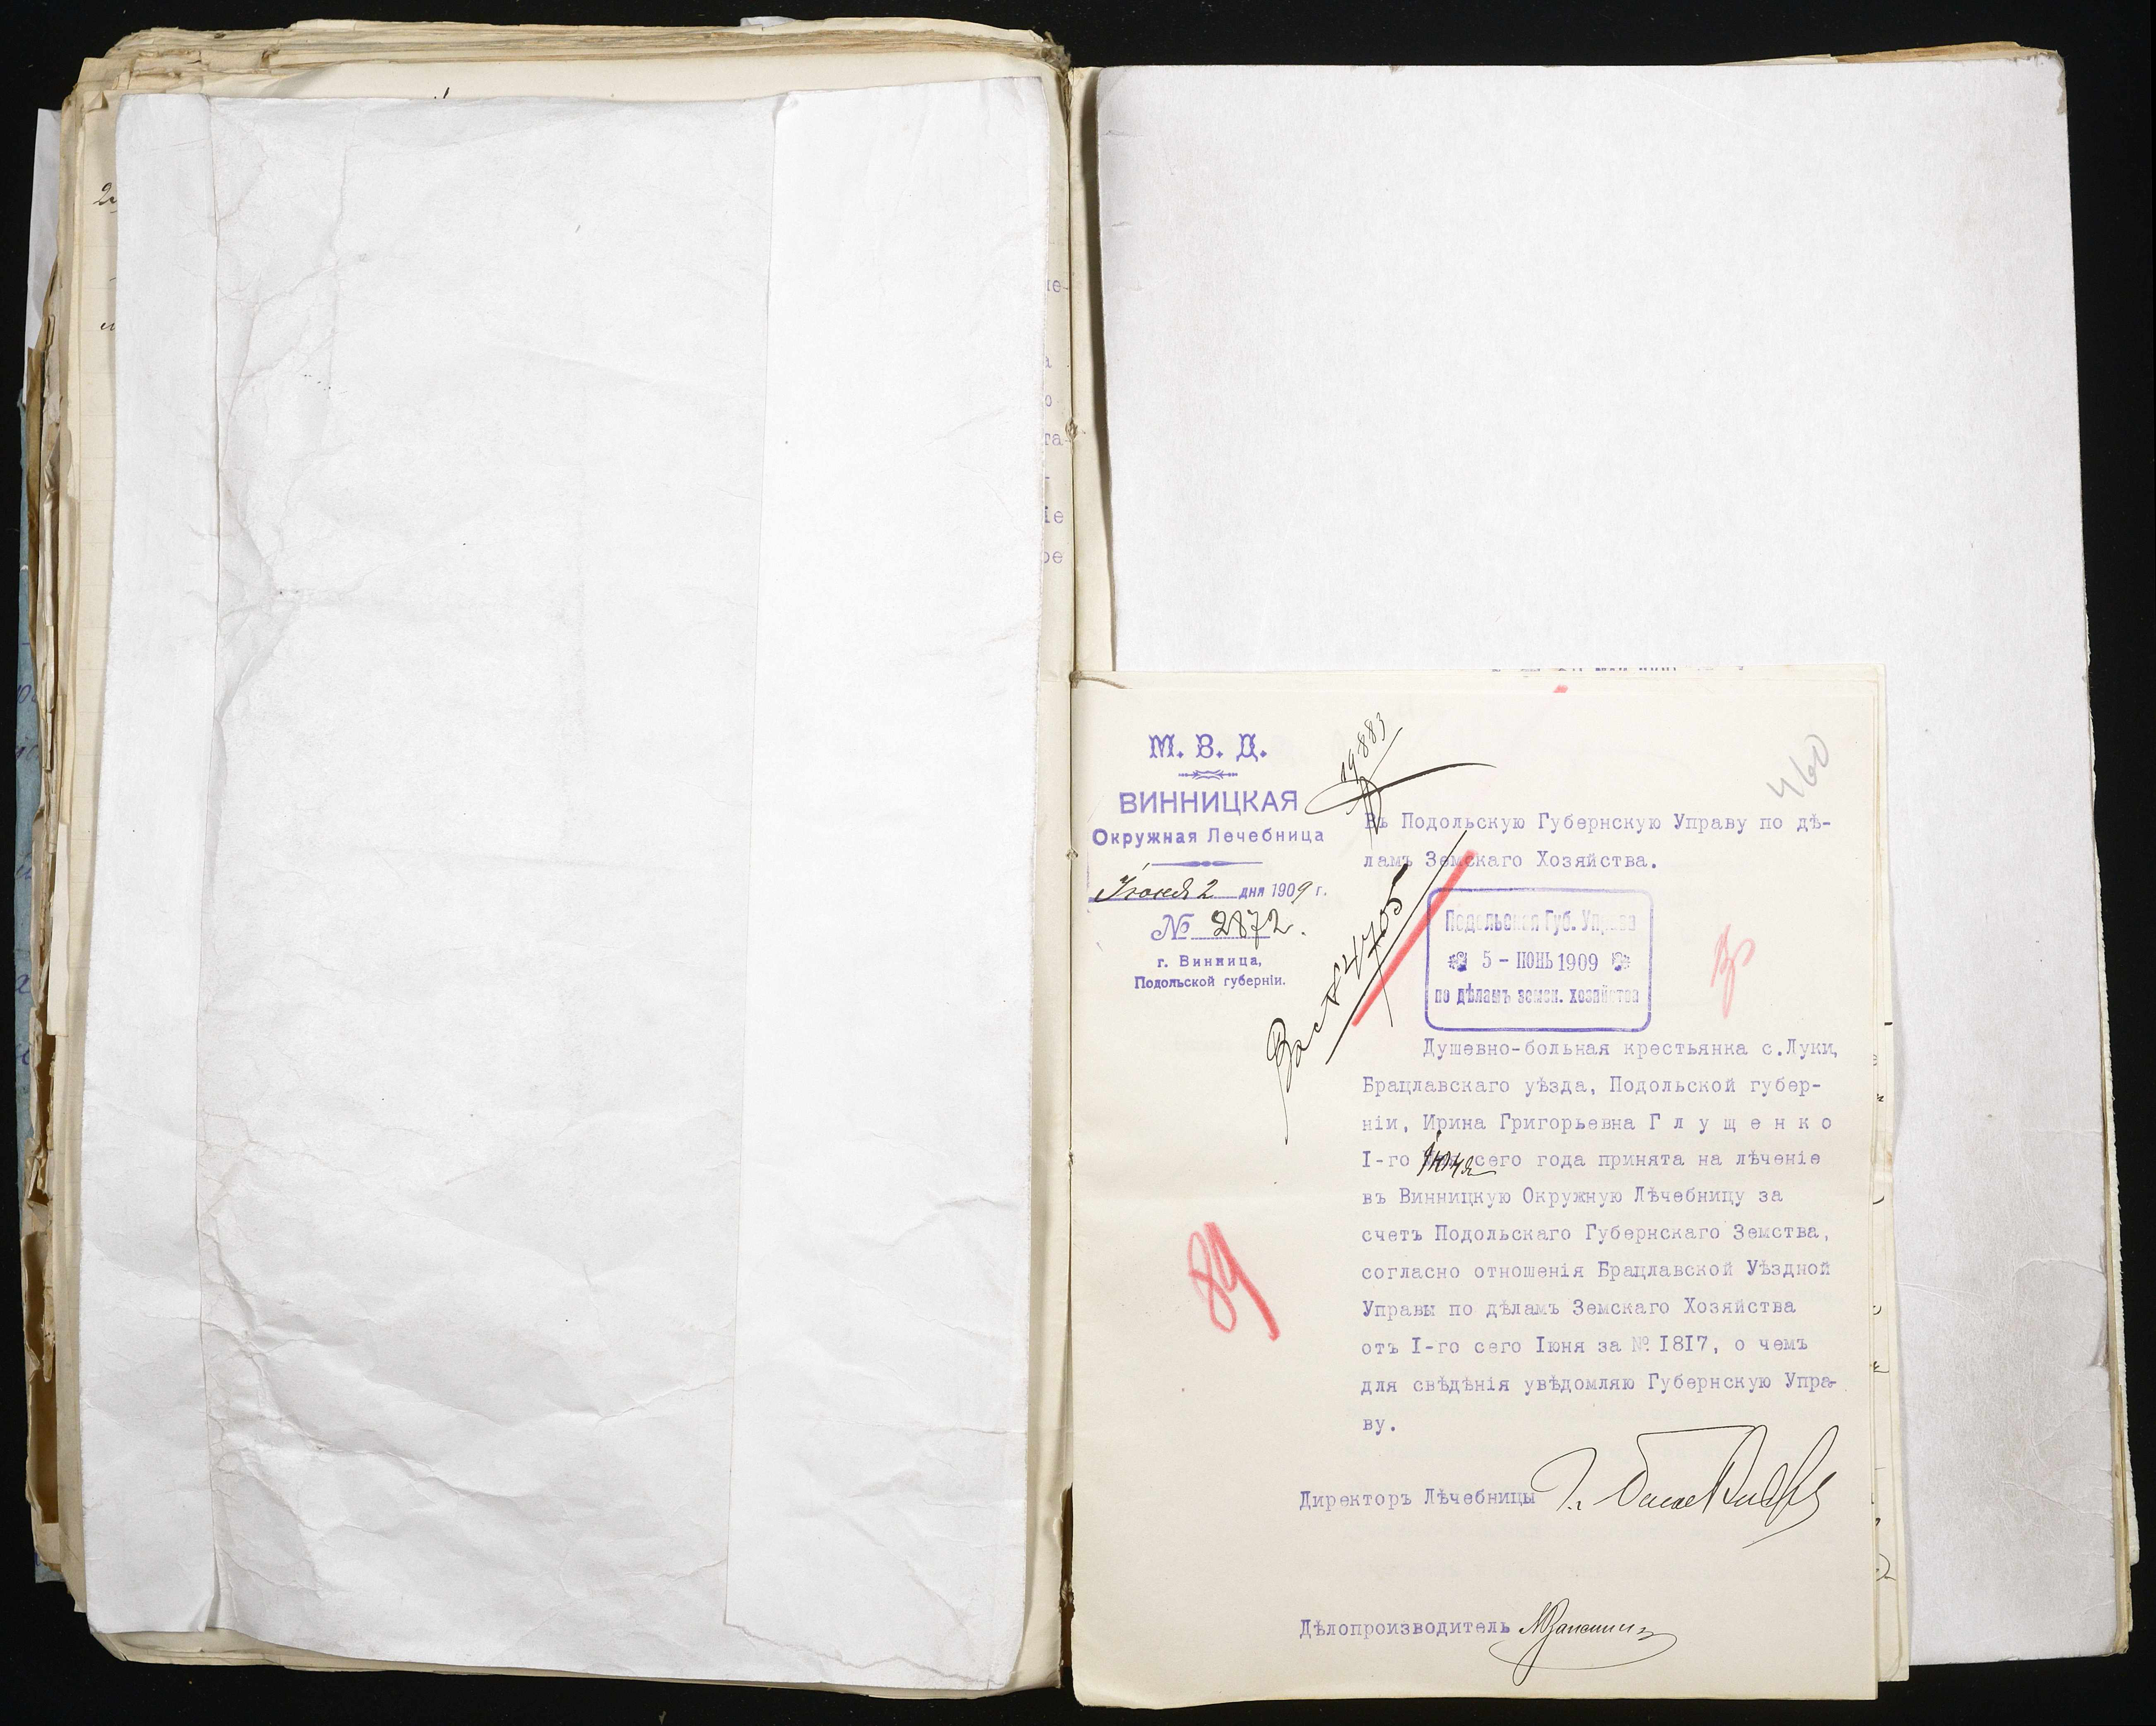 М. В. Д.
ВИННИЦКАЯ
Окружная Лечебница
Іюня 2 дня 1909 г.
№ 2872.
г. Винница,
Подольской губерніи.
19883
460
Въ Подольскую Губернскую Управу по дѣ-
ламъ Земскаго Хозяйства.
Подольская Губ. Управа
5 - ІЮНЬ 1909
по дѣламъ земск. хозяйства
Душевно-больная крестьянка с.Луки,
Брацлавскаго уѣзда, Подольской губер-
ніи, Ирина Григорьевна Г л у щ е н к о
I-го Іюня сего года принята на лѣченіе
въ Винницкую Окружную Лѣчебницу за
счетъ Подольскаго Губернскаго Земства,
согласно отношенія Брацлавской Уѣздной
Управы по дѣламъ Земскаго Хозяйства
отъ I-го сего Іюня за № I8I7, о чемъ
для свѣдѣнія увѣдомляю Губернскую Упра-
ву.
89
Директоръ Лѣчебницы
Дѣлопроизводитель